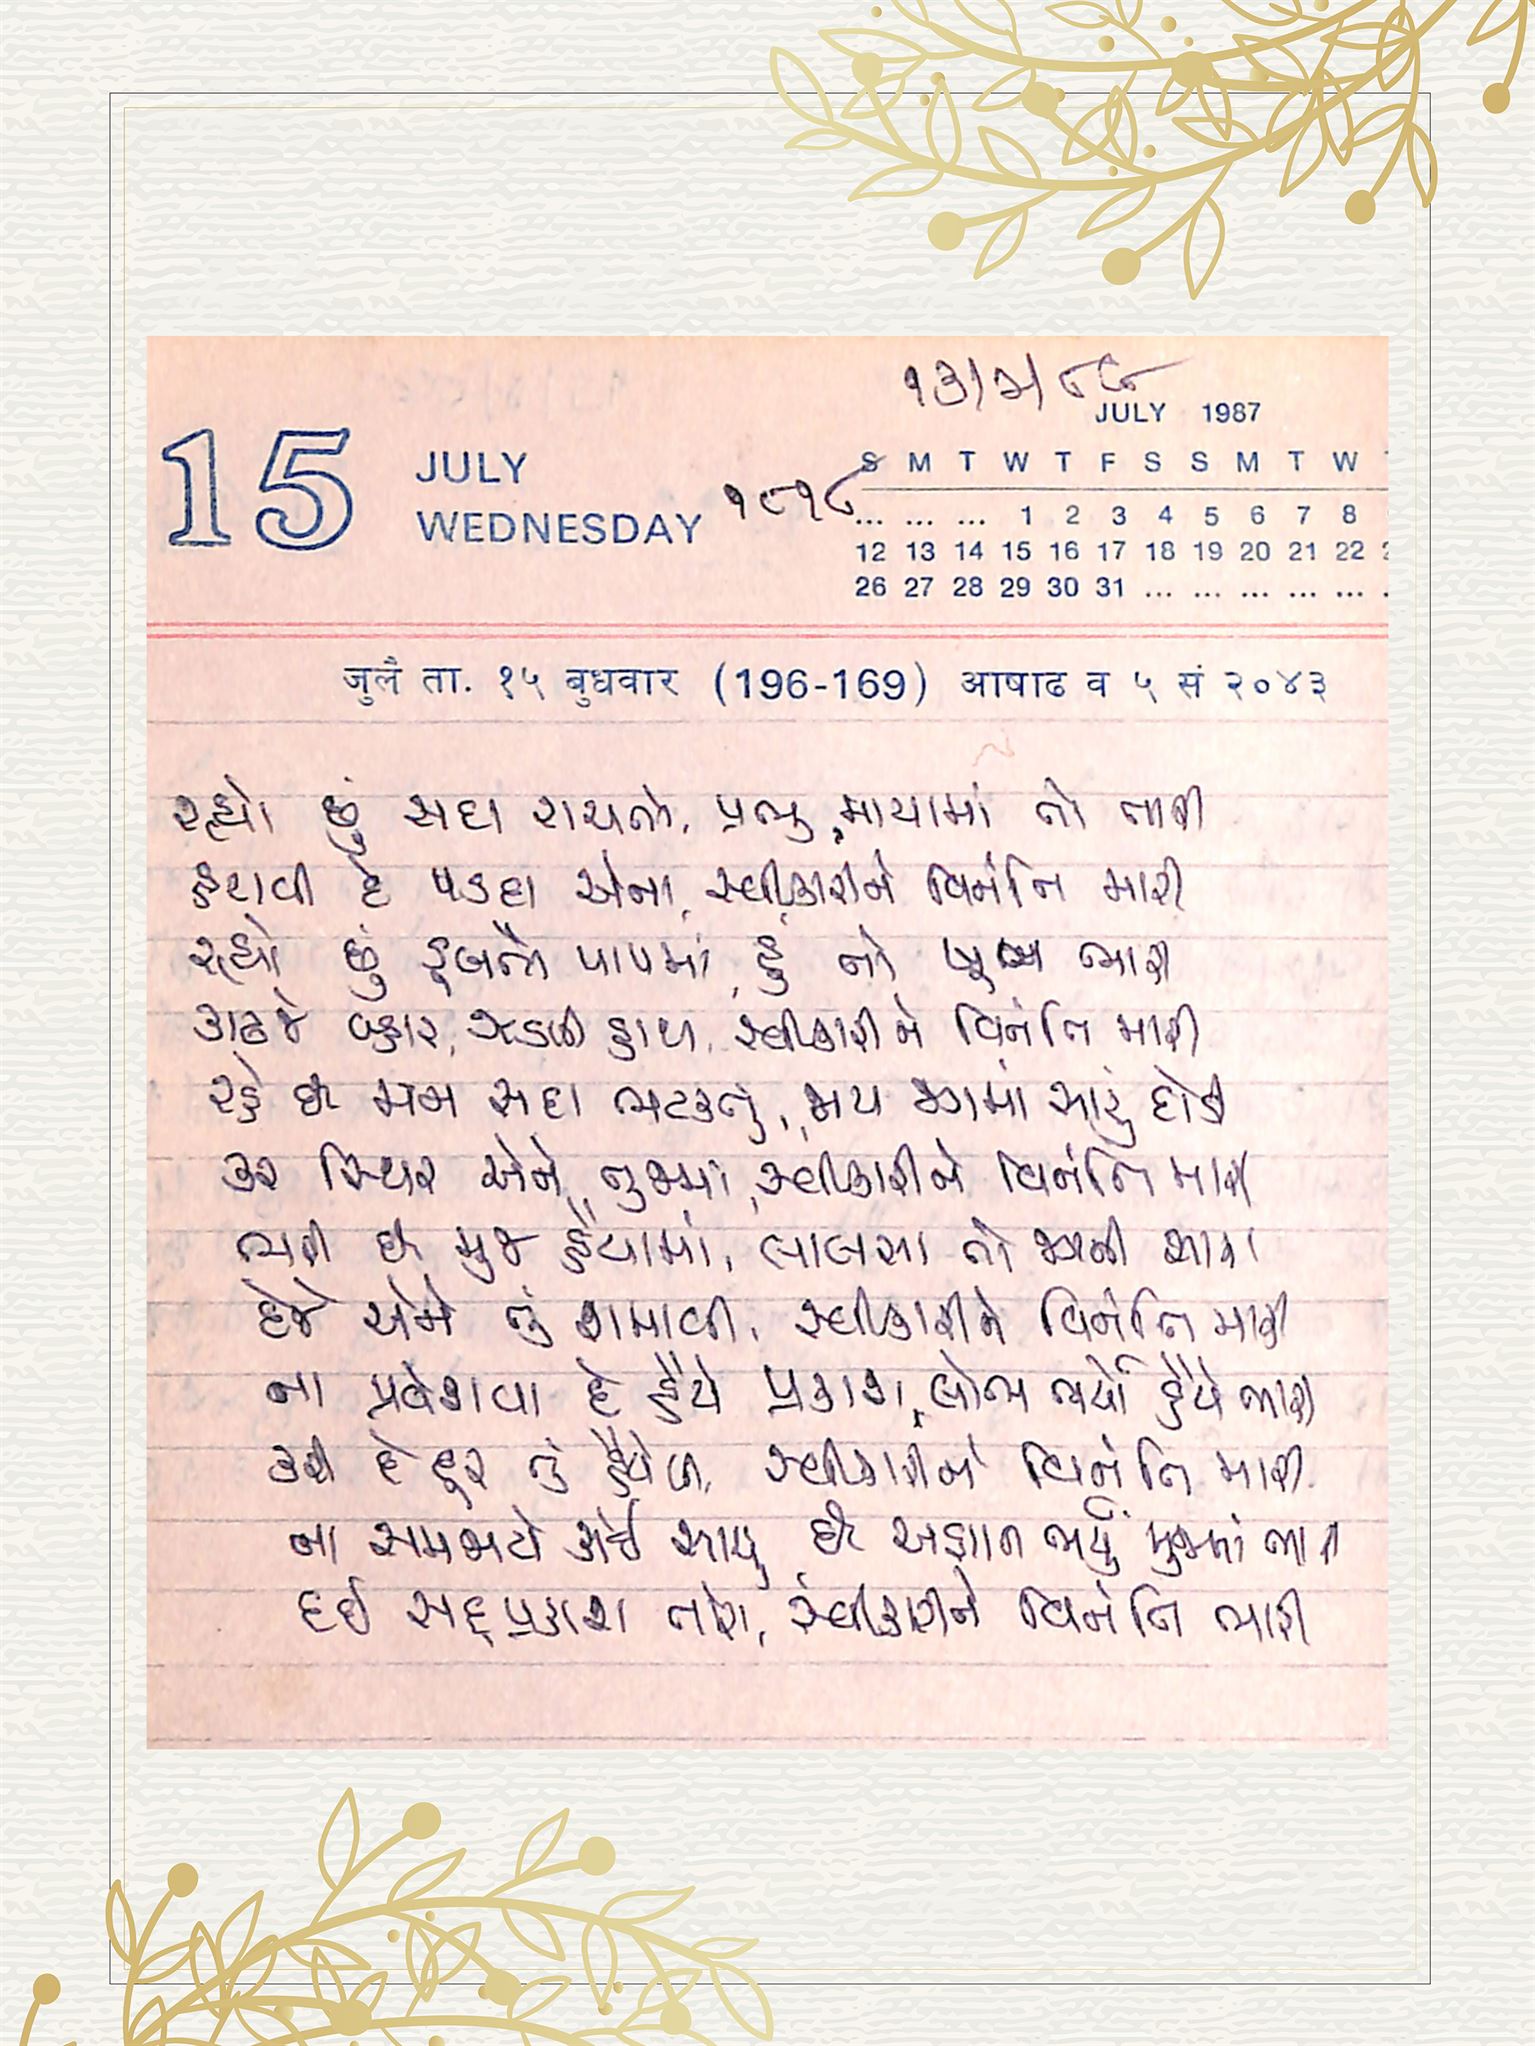 ૧૩/૭/૮૯
JULY 1987
15 JULY
WEDNESDAY
૧૯૧૯
S M T W T F S S M T W
... ... ... 1 2 3 4 5 6 7 8
12 13 14 15 16 17 18 19 20 21 22
26 27 28 29 30 31 ... ... ... ... ...
जुलै ता. १५ बुधवार (196-169) आषाढ व ५ सं २०४३
રહ્યો છું સદા રાચતો, પ્રભુ, માયામાં તો તારી
હટાવી દે પડદા એના, સ્વીકારીને વિનંતિ મારી
રહ્યો છું ડૂબતો પાપમાં, હું તો ખૂબ ભારી
કાઢજે બહાર, ઝડપી હાથ, સ્વીકારીને વિનંતિ મારી
રહે છે મન સદા ભટકતું, જાય જગમાં સારું દોડી
કર સ્થિર એને, તુજમાં, સ્વીકારીને વિનંતિ મારી
ભરી છે મુજ હૈયામાં, લાલસા તો જગની સારી
દેજે એને તું શમાવી, સ્વીકારીને વિનંતિ મારી
ના પ્રવેશવા દે હૈયે પ્રકાશ, લોભ ભર્યો હૈયે ભારી
કરી દે દૂર તું હૈયેથી, સ્વીકારીને વિનંતિ મારી
ના સમજાયે કાંઈ સાચું છે અજ્ઞાન ભર્યું મુજમાં ભારી
દઈ સદ્દપ્રકાશ તારો, સ્વીકારીને વિનંતિ મારી